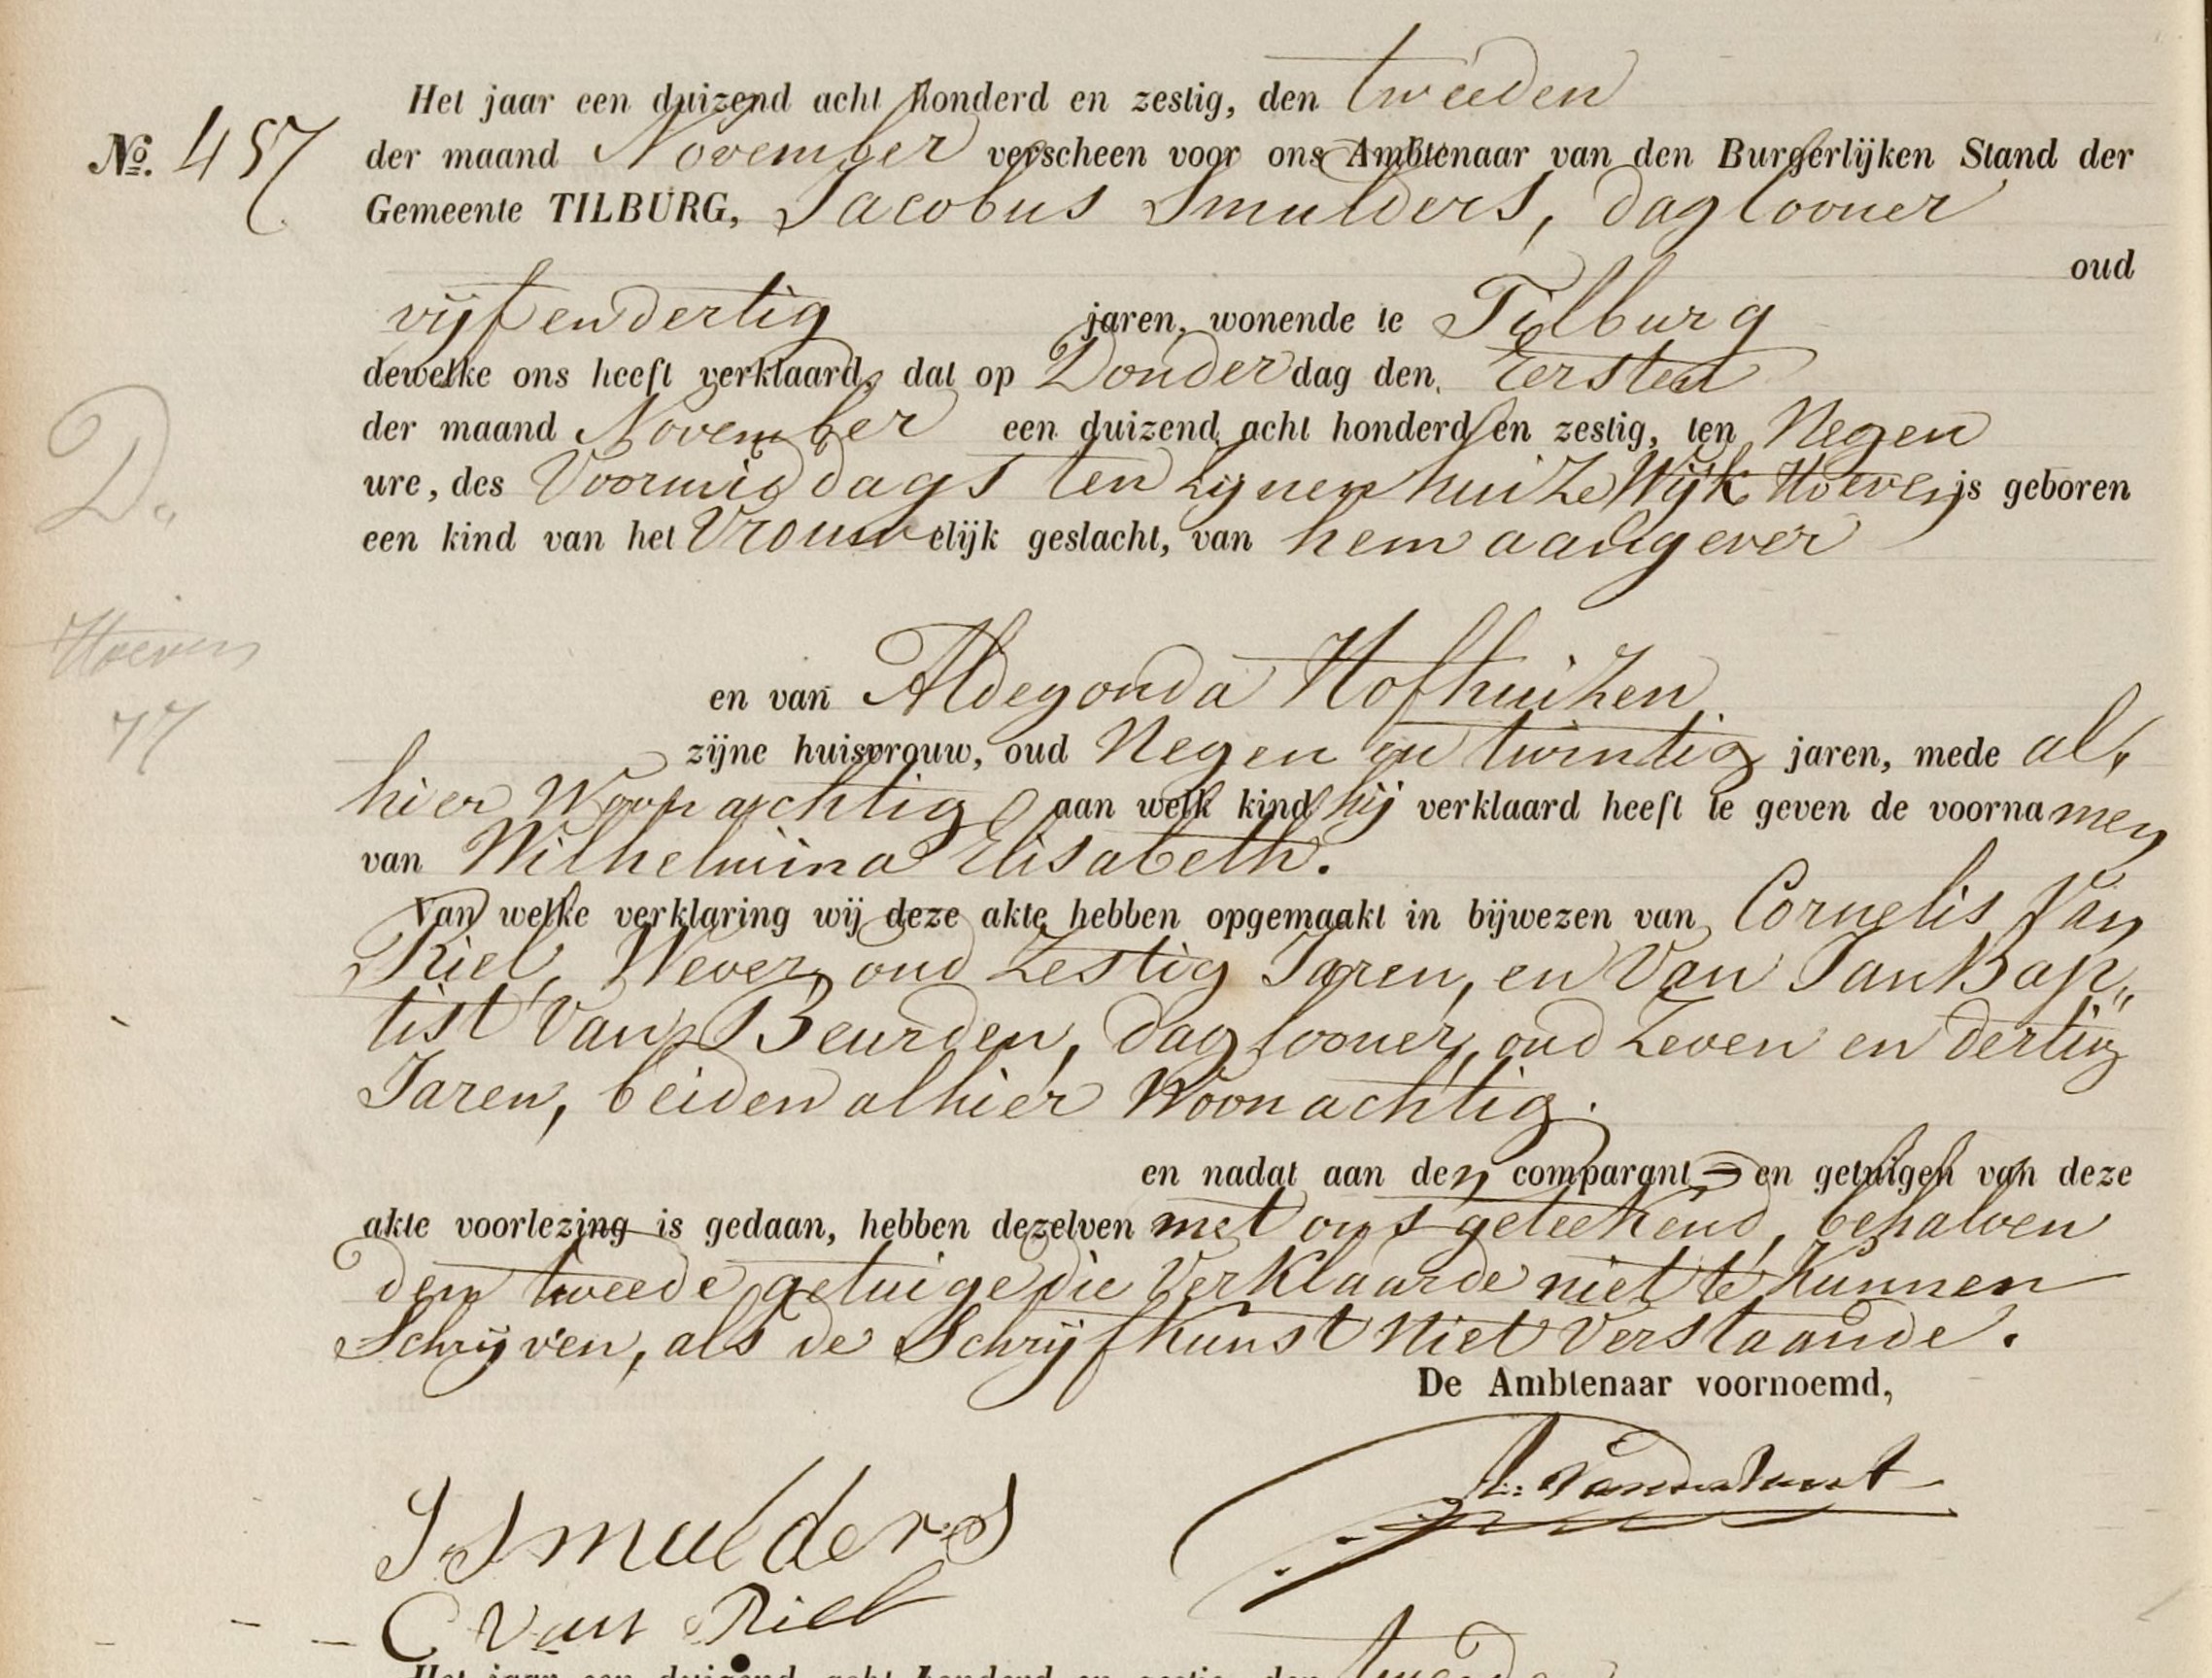 Het jaar een duizend acht honderd en zestig, den tweeden
No. 457
der maand November verscheen voor ons Ambtenaar van den Burgerlijken Stand der
Gemeente TILBURG, Jacobus Smulders, daglooner
oud
vijf en dertig jaren, wonende te Tilburg
dewelke ons heeft verklaard, dat op Donderdag den Eersten
der maand November een duizend acht honderd en zestig, ten Negen
ure, des Voormiddags ten zijnen huize Wijk Hoeven is geboren
D.
een kind van het Vrouwelijk geslacht, van hem aangever
Hoeven
77
en van Aldegonda Hofhuizen
zijne huisvrouw, oud Negen en twintig jaren, mede al,
hier Woonachtig aan welk kind hij verklaard heeft te geven de voornamen
van Wilhelmina Elisabeth.
Van welke verklaring wij deze akte hebben opgemaakt in bijwezen van Cornelis Van
Riel, Wever, oud Zestig Jaren, en Van Jan Bap„
tist Van Beurden, daglooner, oud Zeven en dertig
Jaren, beiden alhier Woonachtig.
en nadat aan den comparant = en getuigen van deze
akte voorlezing is gedaan, hebben dezelven met ons geteekend, behalven
den tweede getuige die Verklaarde niet te Kunnen
Schrijven, als de Schrijfkunst Niet Verstaande.
De Ambtenaar voornoemd,
J Smulders
C van Riel
Het jaar een duizend acht honderd en zestig, den tweede